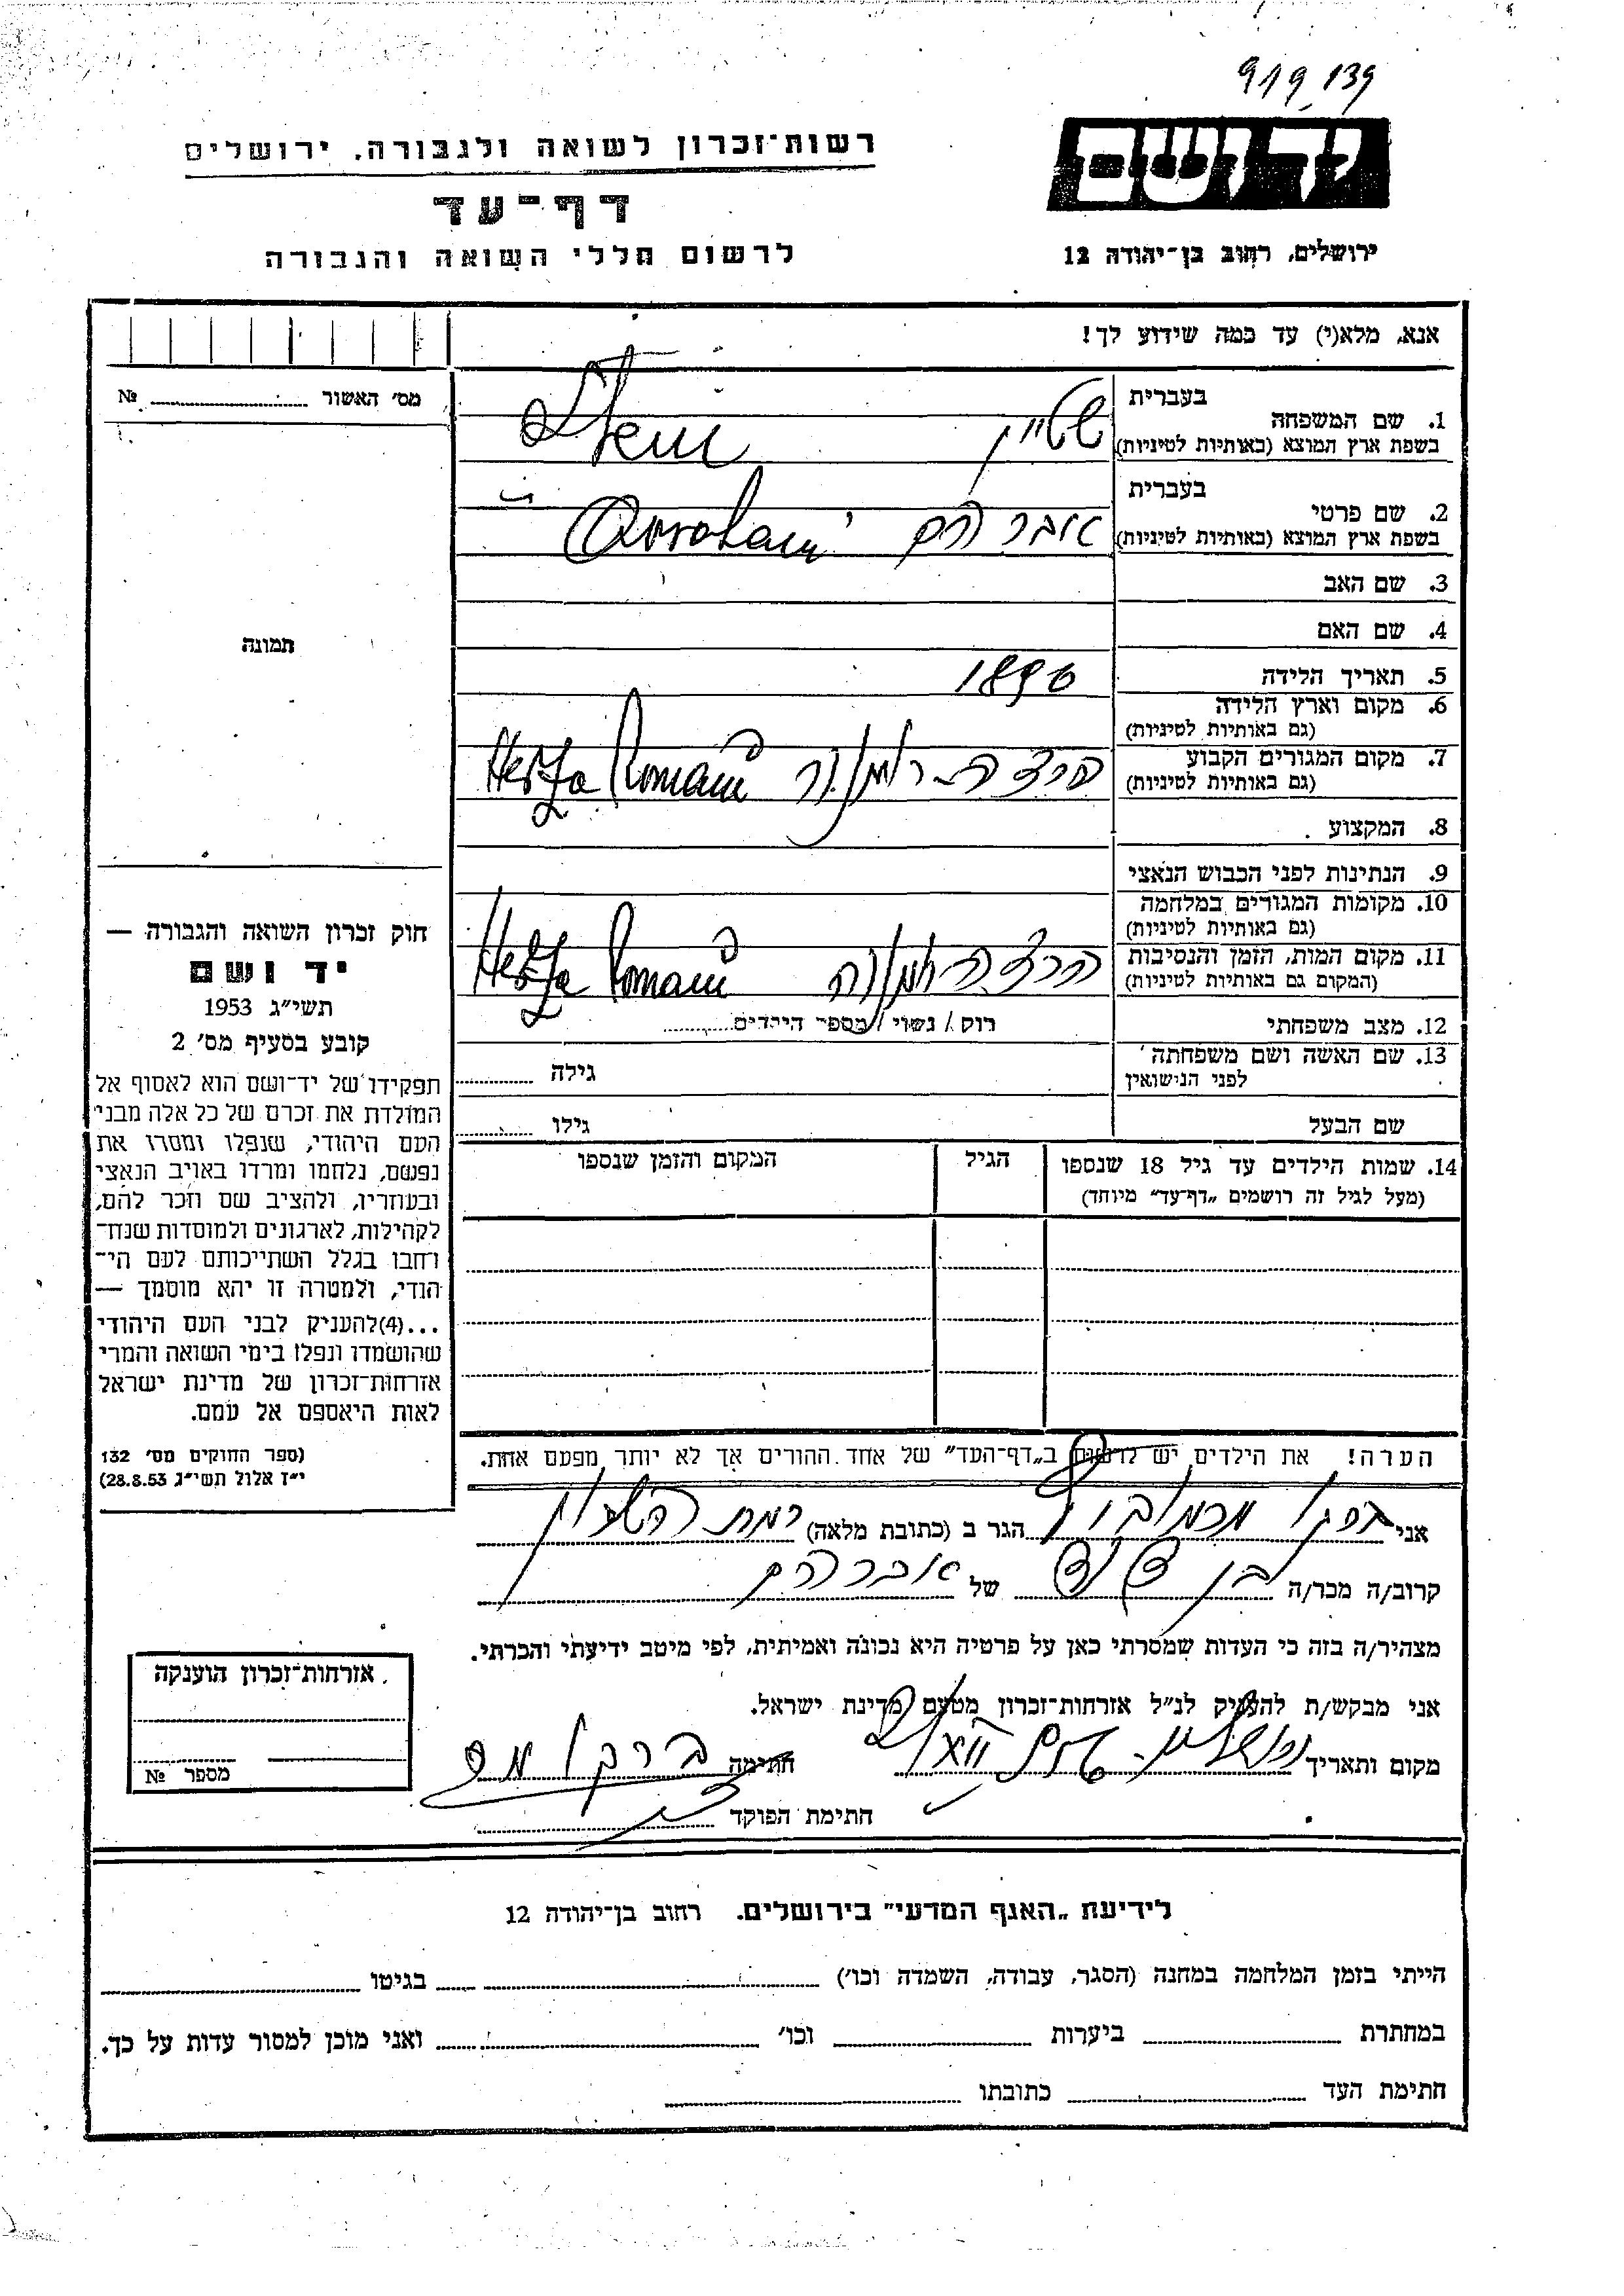 919 139
יד ושם
ירושלים, רחוב בן־יהודה 12
רשות־זכרון לשואה ולגבורה, ירושלים
דף־עד
לרשום חללי השואה והגבורה
אנא, מלא(י) עד כמה שידוע לך!
1. שם המשפחה
בעברית
בשפת ארץ המוצא (באותיות לטיניות)
שטיין Stein
2. שם פרטי
בעברית
בשפת ארץ המוצא (באותיות לטיניות)
אברהם Avraham
3. שם האב
4. שם האם
5. תאריך הלידה
1896
6. מקום וארץ הלידה
(גם באותיות לטיניות)
7. מקום המגורים הקבוע
(גם באותיות לטיניות)
הרצה - רומניה Hertza Romania
8. המקצוע
9. הנתינות לפני הכבוש הנאצי
10. מקומות המגורים במלחמה
(גם באותיות לטיניות)
11. מקום המות, הזמן והנסיבות
(המקום גם באותיות לטיניות)
הרצה רומניה Hertza Romania
12. מצב משפחתי
רוק / נשוי / מספר הילדים
13. שם האשה ושם משפחתה
לפני הנישואין
גילה
שם הבעל
גילו
14. שמות הילדים עד גיל 18 שנספו
(מעל לגיל זה רושמים „דף־עד” מיוחד)
הגיל
המקום והזמן שנספו
הערה! את הילדים יש לרשום ב„דף־העד” של אחד ההורים אך לא יותר מפעם אחת.
מס׳ האשור № 
תמונה
חוק זכרון השואה והגבורה —
יד ושם
תשי״ג 1953
קובע בסעיף מס׳ 2
תפקידו של יד־ושם הוא לאסוף אל
המולדת את זכרם של כל אלה מבני
העם היהודי, שנפלו ומסרו את
נפשם, נלחמו ומרדו באויב הנאצי
ובעוזריו, ולהציב שם וזכר להם,
לקהילות, לארגונים ולמוסדות שנח־
רחבו בגלל השתייכותם לעם הי־
הודי, ולמטרה זו יהא מוסמך —
...(4)להעניק לבני העם היהודי
שהושמדו ונפלו בימי השואה והמרי
אזרחות־זכרון של מדינת ישראל
לאות היאספם אל עמם.
(ספר החוקים מס׳ 132
י״ז אלול תשי״ג 28.8.53)
אני ברקו הגר ב (כתובת מלאה) רמת השרון
קרוב/ה מכר/ה בן דוד של אברהם
מצהיר/ה בזה כי העדות שמסרתי כאן על פרטיה היא נכונה ואמיתית, לפי מיטב ידיעתי והכרתי.
אני מבקש/ת להעניק לנ״ל אזרחות־זכרון מטעם מדינת ישראל.
מקום ותאריך חתימה ברקו
חתימת הפוקד
אזרחות־זכרון הוענקה
מספר №
לידיעת „האגף המדעי” בירושלים. רחוב בן־יהודה 12
הייתי בזמן המלחמה במחנה (הסגר, עבודה, השמדה וכו׳) בגיטו
במחתרת ביערות וכו׳ ואני מוכן למסור עדות על כך.
חתימת העד כתובתו